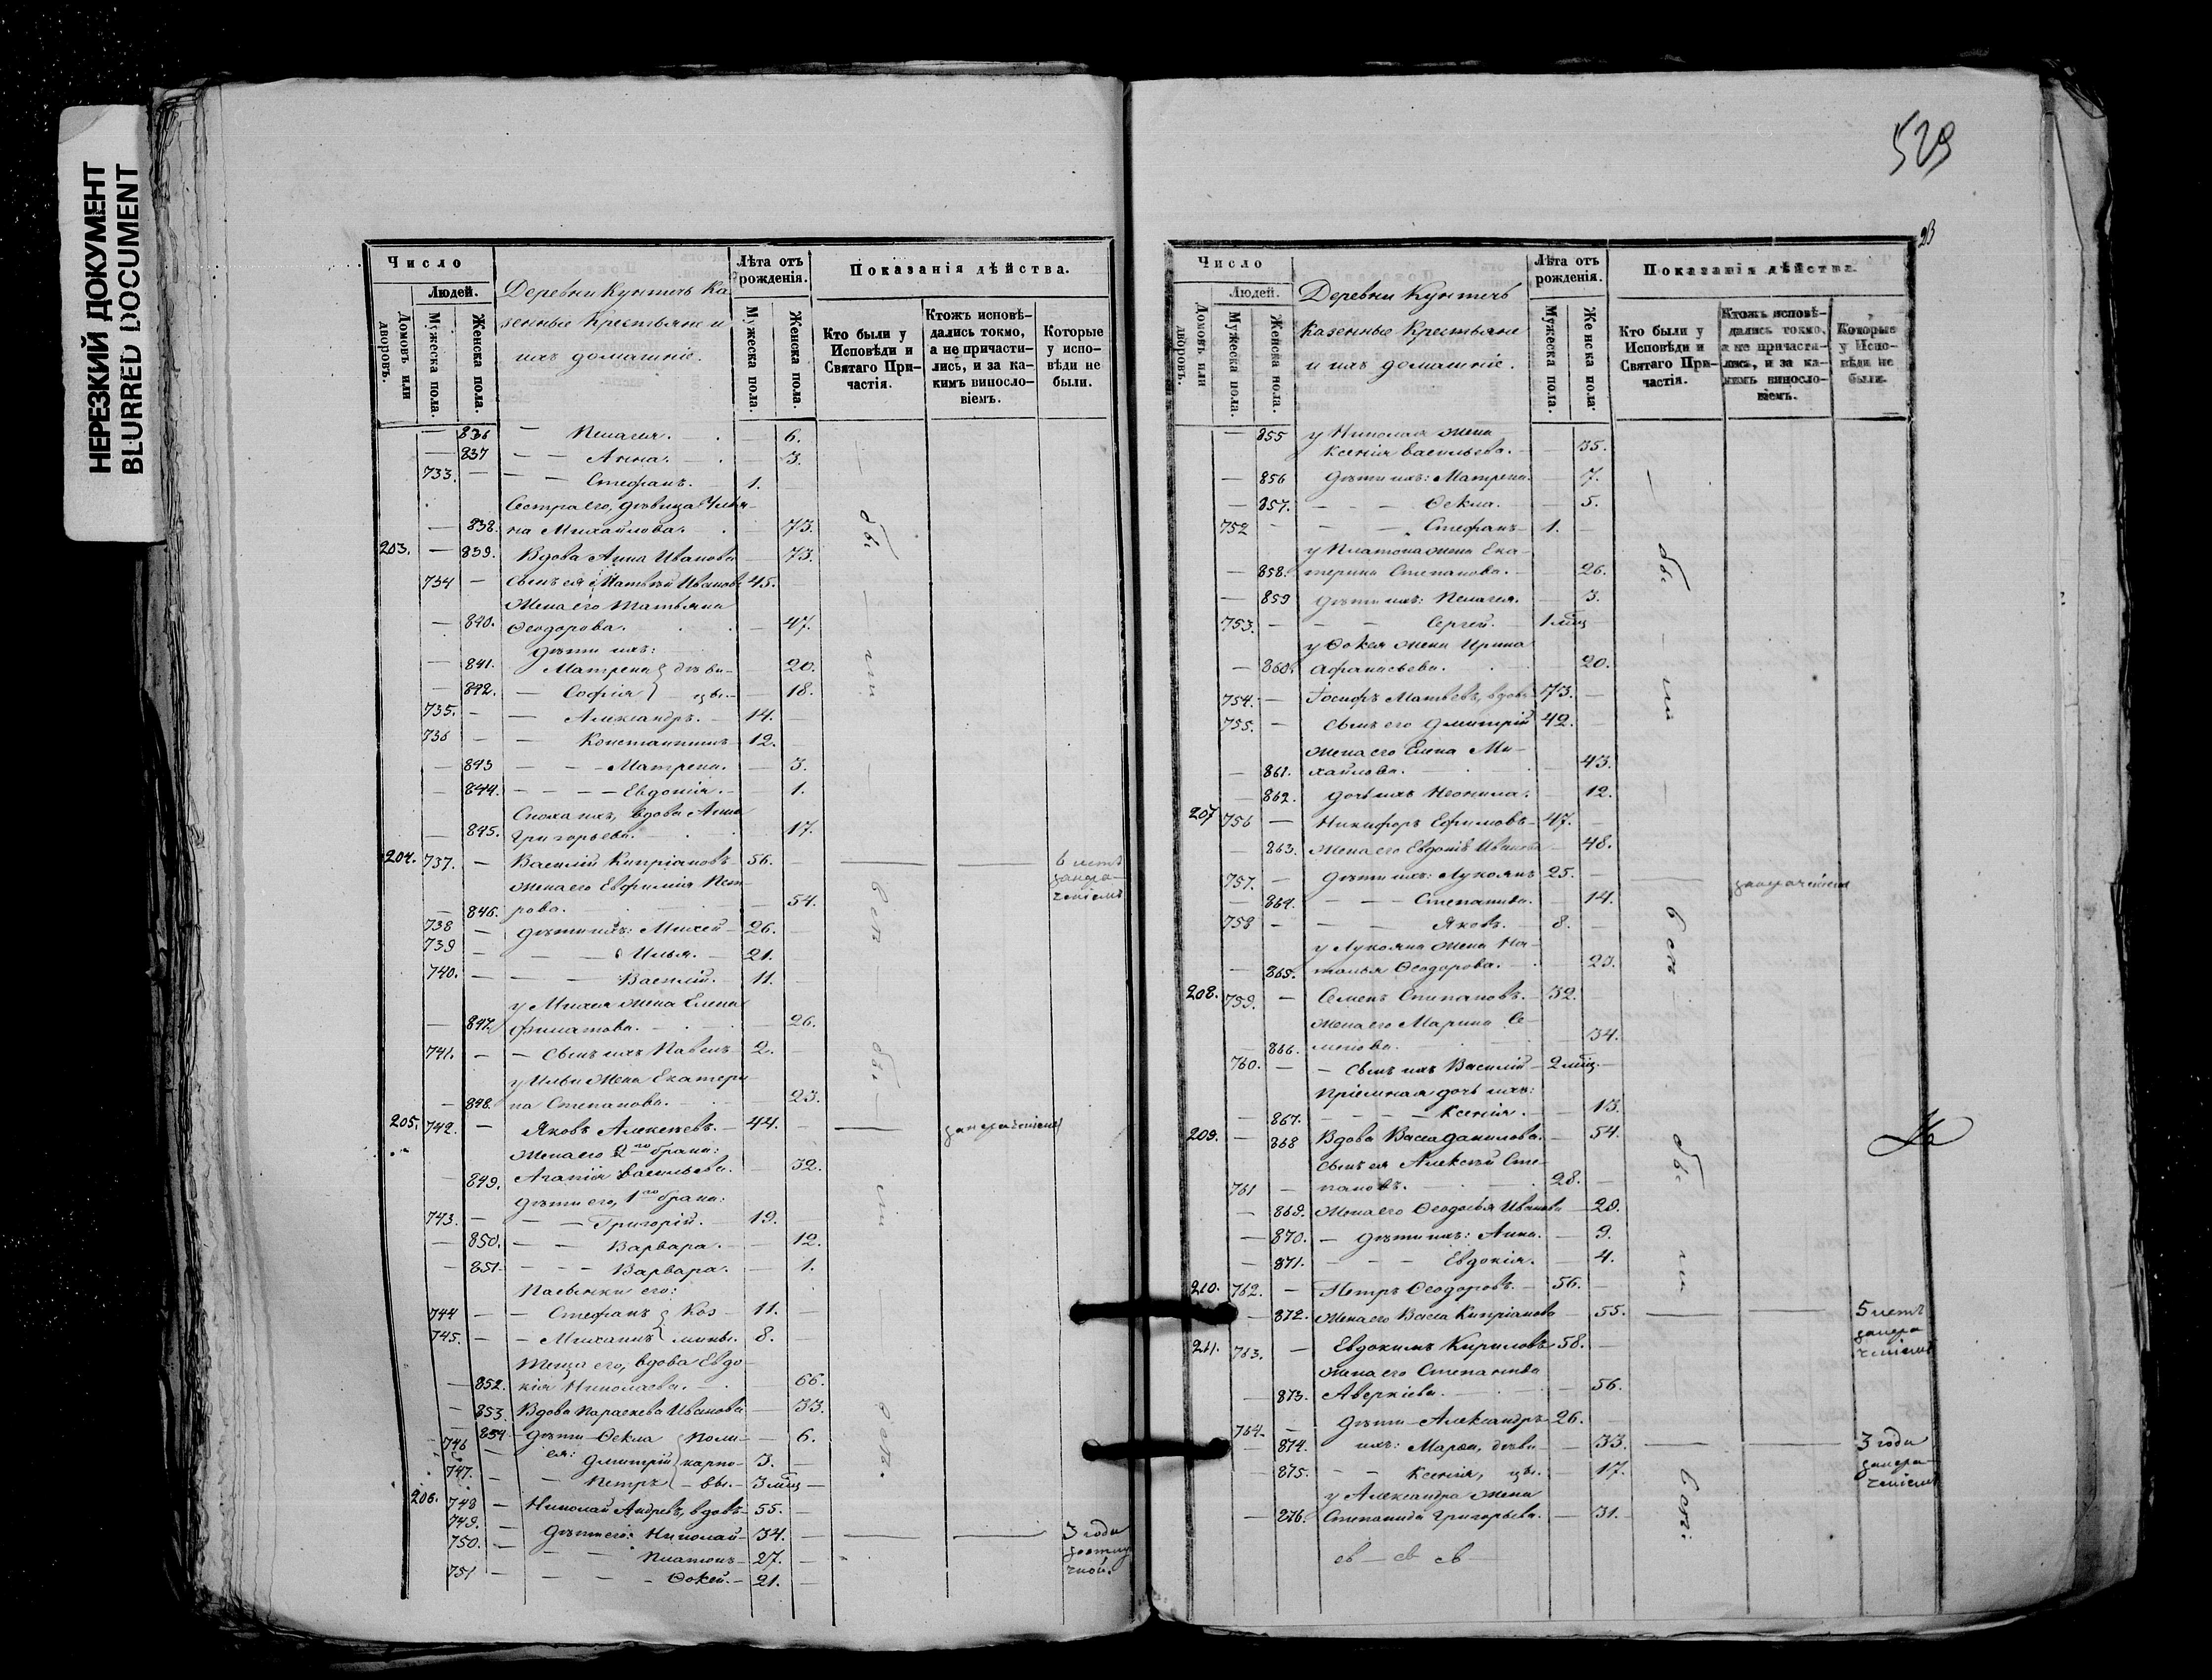 НЕРЕЗКИЙ ДОКУМЕНТ
BLURRED DOCUMENT
Число
Людей.
Домовъ или дворовъ.
Мужеска пола.
Женска пола.
Деревни Кунтечь Ка
зенные Крестьяне и
ихъ домашніе.
Лѣта отъ рожденія.
Мужеска пола.
Женска пола.
Показанія дѣйства.
Кто были у Исповѣди и Святаго Причастія.
Ктожъ исповѣдались токмо, а не причастились, и за какимъ винословіемъ.
Которые у исповѣди не были.
— 836 — Пелагея. — 6.
— 837 — — Анна. — 3.
733. — — — Стефанъ. — 1.
Сестра его, дѣвица Улья-
— 838. на Михайлова. — 73.
203. — 839. Вдова Анна Иванова — 73.
734 — Сынъ ея Матвѣй Ивановъ 45.
Жена его Татьяна
— 840. Ѳеодорова. — 47.
Дѣти ихъ:
— 841. Матрена } дѣви- 20.
— 842. — Софія } — цы. — 18.
735. — — Александръ. — 14. —
736 — — Константинъ — 12. —
— 843 — — Матрена. — 3.
— 844. — — — Евдокія. — 1.
Сноха ихъ, вдова Анна
— 845. Григорьева. 17.
204. 737. — Василій Кипріановъ — 56. — 6 лѣтъ
Жена его Евфимія Пет-
— 846. рова. — 54.
738 — Дѣти ихъ: Михей — 26. —
739 — — — Илья. — 21. —
740. — — — Василій. — 11. —
у Михея жена Елена
— 847. Филатова. — 26.
741. — — Сынъ ихъ Павелъ — 2. —
у Ильи жена Екатери
— 848. на Степанова. — 23.
205. 742. — Яковъ Алексѣевъ. — 44. —
Жена его 2го брака:
— 849. Агапія Васильева. — 32.
Дѣти его, 1го брака:
743. — — — Григорій. — 19. —
— 850. — — Варвара. — 12.
— 851. — — — Варвара. — 1.
Пасынки его:
744 — — Стефанъ } Коз — 11. —
745. — — Михаилъ } мины. 8. —
Теща его, вдова Евдо-
— 852. кія Николаева. — 66.
— 853. Вдова Параскева Иванова — 33.
— 854 — Дѣти — Ѳекла } Поли- — 6.
746 — ея: Дмитрій } карпо- 3. —
747. — — Петръ } — вы. — 3 мѣц —
206. 748 — Николай Андревъ, вдовъ — 55. —
749. — Дѣти его: Николай — 34. — 3 года
750. — — Платонъ — 27. —
751 — — — Ѳокей. — 21. —
529
23
Число
Людей.
Домовъ или дворовъ.
Мужеска пола.
Женска пола.
Деревни Кунтечь
Казенные Крестьяне
и ихъ домашніе.
Лѣта отъ рожденія.
Мужеска пола.
Женска пола.
Показанія дѣйства.
Кто были у Исповѣди и Святаго Причастія.
Ктожъ исповѣдались токмо, а не причастились, и за какимъ винословіемъ.
Которые у Исповѣди не были.
— 855 у Николая жена
Ксенія Васильева. — 35.
— 856 Дѣти ихъ: Матрена. — 7.
— 857. — — Ѳекла. — 5.
752 — — — Стефанъ — 1. —
у Платона жена Ека-
— 858. терина Степанова. — 26.
— 859 Дѣти ихъ: Пелагея. — 3.
753. — — — Сергей. — 1 мѣц
у Ѳокея жена Ирина
— 860. Афанасьева. 20.
754. — Іосифъ Матвевъ, вдовъ — 73. —
755. — Сынъ его Дмитрій 42. —
Жена его Елена Ми-
— 861. хайлова. — 43.
— 862. Дочь ихъ Неонила. — 12.
207 756 — Никифоръ Ефимовъ — 47. —
— 863. Жена его Евдокія Иванова — 48.
757. — Дѣти ихъ: Лукоянъ 25. —
— 864. — — — Степанида. — 14.
758 — — — Яковъ. — 8. —
у Лукояна жена На-
— 865. талья Ѳеодорова. — 23.
208. 759. — Семенъ Степановъ. — 32. —
Жена его Марина Се-
— 866. менова. — 34.
760. — — Сынъ ихъ Василій — 2 мѣц —
Пріемная дочь ихъ:
— 867. — — — Ксенія. — 13.
209. — 868 Вдова Васса Данилова. — 54.
Сынъ ея Алексѣй Сте-
761 — пановъ. — 28. —
— 869. Жена его Ѳеодосья Иванова — 29.
— 870. — Дѣти ихъ: Анна. — 9.
— 871. — — — Евдокія. — 4.
210. 762. — Петръ Ѳеодоровъ. — 56. —
— 872. Жена его Васса Кипріанова — 55. — 5 лѣтъ
211. 763. — Евдокимъ Кириловъ — 58. —
Жена его Степанида
— 873. Аверкіева. — 56.
764. — Дѣти — Александръ — 26. —
— 874. ихъ: Марѳа, дѣви- — 33. — 3 года
— 875. — — Ксенія, цы. — 17.
у Александра жена
— 876. Степанида Григорьева. — 31.